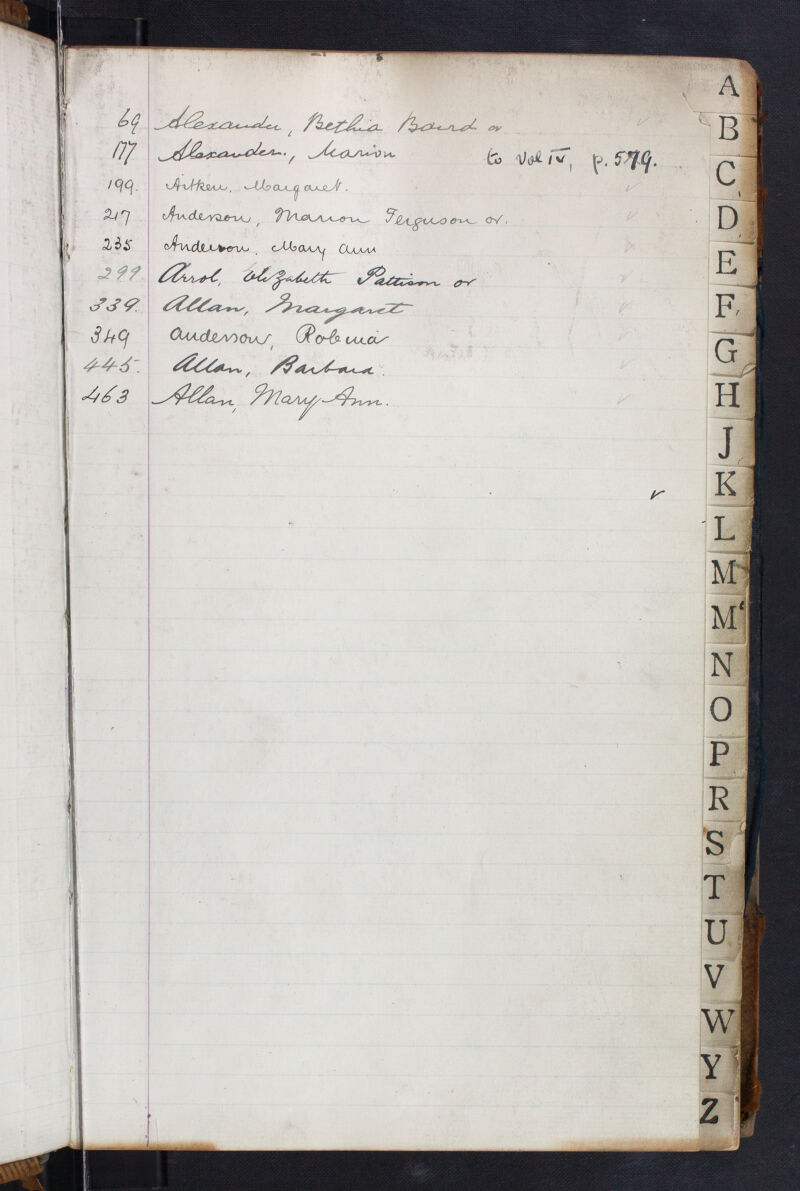 69 Alexander, Bethia Baird or
177 Alexander, Marion to Vol IV, p. 579.
199. Aitken, Margaret.
217 Anderson, Marion Ferguson or.
235 Anderson, Mary Ann
299 Arrol, Elizabeth Pattison or
339. Allan, Margaret
349 Anderson, Robina
445. Allan, Barbara.
463 Allan, Mary Ann.
A
B
C
D
E
F
G
H
J
K
L
M
Mc
N
O
P
R
S
T
U
V
W
Y
Z